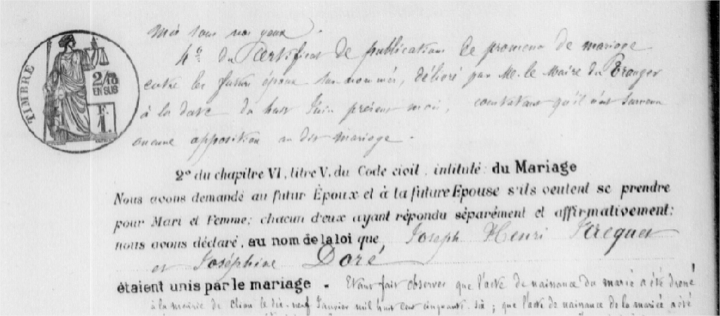 TIMBRE
2/10
EN SUS
F.
1
Mis sous nos yeux.
4º du Certificat de publication de promesse de mariage
entre les futurs époux susnommés, délivré par M. le Maire du Tronger
à la date du huit Juin présent mois, constatant qu'il n'est survenu
aucune opposition au dit mariage.
2º du chapitre VI, titre V, du Code civil, intitulé: du Mariage
Nous avons demandé au futur Époux et à la future Epouse s'ils veulent se prendre
pour Mari et Femme; chacun d'eux ayant répondu séparément et affirmativement;
nous avons déclaré, au nom de la loi que, Joseph Henri Jacquet
et Joséphine Doré
étaient unis par le mariage - Et avons fait observer que l'acte de naissance du marié a été dressé
à la mairie de le dix-neuf Janvier mil huit cent cinquante six; que l'acte de naissance de la mariée a été